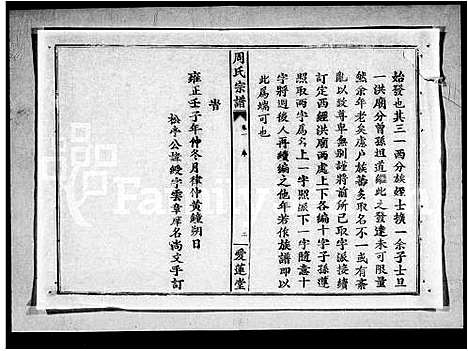 始發也其三一西分族經士擴一余子士旦
一洪廟分曾孫坦道繼此之發達未可限量
然余年老矣慮户族蕃多取名不一或有紊
亂以致尊卑無别謹將前所已取字派接續
訂定西經洪廟兩處上下各編十字子孫遵
照取兩字爲名上一字照派下一字隨意十
字將週後人再續編之他年若修族譜即以
此爲端可也
旹
雍正壬子年仲冬月律仲黄鐘朔日
松亭公諱綬字雲章庠名尚文手訂
周氏宗譜
卷一
二
愛蓮堂